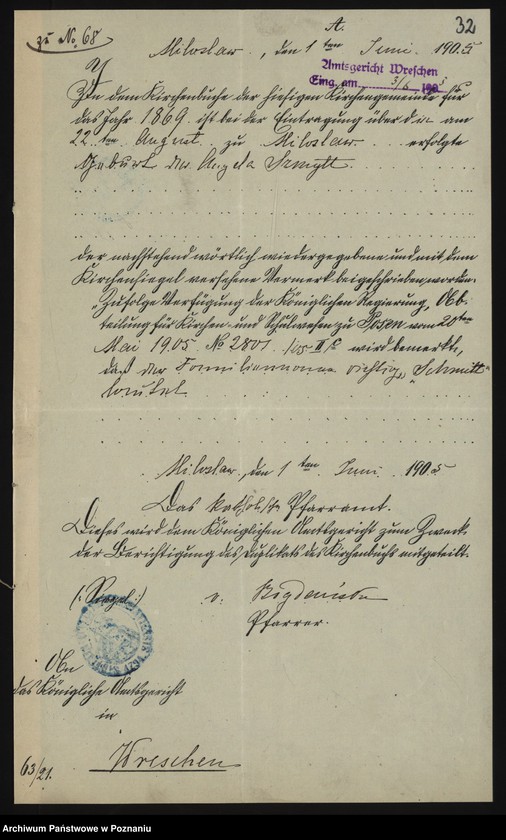 A.
32
zu No. 68
Miloslaw, den 1ten Juni 1905
Amtsgericht Wreschen
Eing. am 3/6 1905
In dem Kirchenbuche der hiesigen Kirchengemeinde für
das Jahr 1869 ist bei der Eintragung über die am
22ten August zu Miloslaw erfolgte
Geburt der Angela
der nachstehend wörtlich wiedergegebene und mit dem
Kirchensiegel versehene Vermerk beigeschrieben worden:
„Zufolge Verfügung der Königlichen Regierung, Ab-
teilung für Kirchen- und Schulwesen zu Posen vom 20ten
Mai 1905 No 2801/05 II wird bemerkt,
daß der Familienname richtig „Schmitt"
lautet
Miloslaw, den 1ten Juni 1905
Das katholische Pfarramt.
Dieses wird dem Königlichen Amtsgericht zum Zweck
der Berichtigung des Duplikats des Kirchenbuchs mitgeteilt.
(: Siegel :) v.
Pfarrer.
An
das Königliche Amtsgericht
in
Wreschen
63/21.
Archiwum Państwowe w Poznaniu